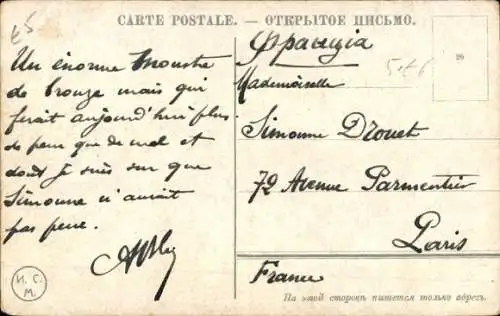 CARTE POSTALE. — ОТКРЫТОЕ ПИСЬМО.
Un énorme monstre
de bronze mais qui
ferait aujourd'hui plus
de peur que de mal et
dont je suis sur que
Simoune n'aurait
pas peur.
Франція
Mademoiselle
Simoune Drouet
72 Avenue Parmentier
Paris
France
И. С.
М.
На этой сторонѣ пишется только адресъ.